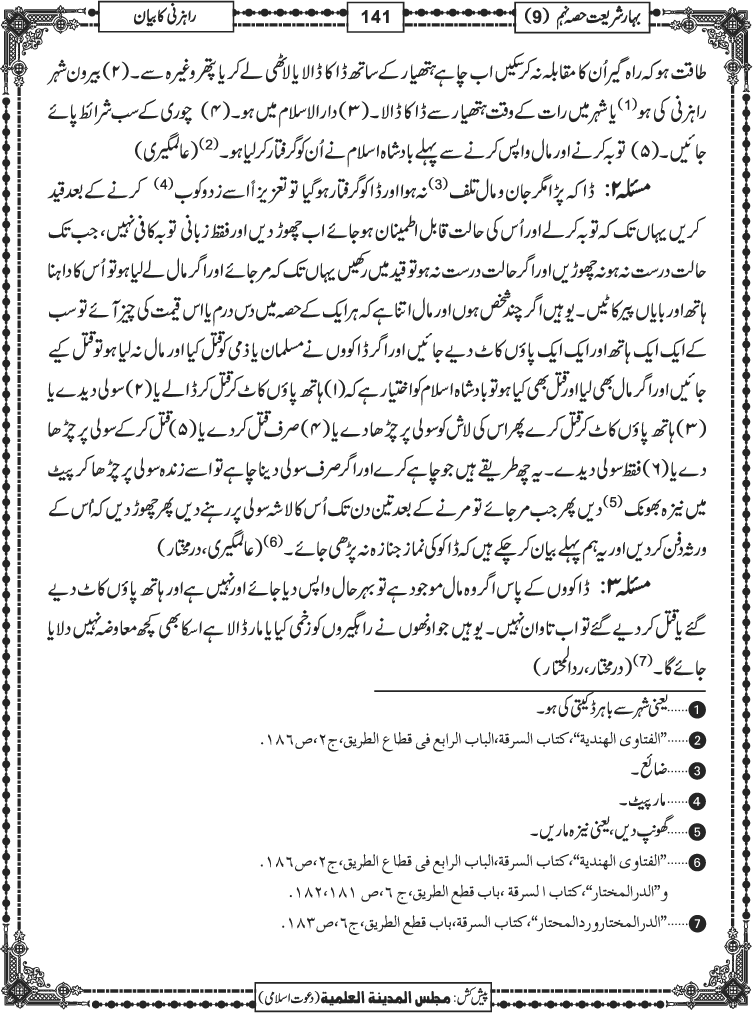 بہار شریعت حصہ نہم (9)
141
راہزنی کا بیان
طاقت ہو کہ راہ گیر اُن کا مقابلہ نہ کرسکیں اب چاہے ہتھیار کے ساتھ ڈاکا ڈالا یا لاٹھی لے کر یا پتھر وغیرہ سے۔ (۲) بیرون شہر
راہزنی کی ہو(1) یا شہر میں رات کے وقت ہتھیار سے ڈاکا ڈالا۔ (۳) دارالاسلام میں ہو۔ (۴) چوری کے سب شرائط پائے
جائیں۔ (۵) توبہ کرنے اور مال واپس کرنے سے پہلے بادشاہ اسلام نے اُن کو گرفتار کرلیا ہو۔(2) (عالمگیری)
مسئلہ ۲: ڈاکہ پڑا مگر جان و مال تلف(3) نہ ہوا اور ڈاکو گرفتار ہوگیا تو تعزیراً اسے زدوکوب(4) کرنے کے بعد قید
کریں یہاں تک کہ توبہ کرلے اور اُس کی حالت قابل اطمینان ہوجائے اب چھوڑ دیں اور فقط زبانی توبہ کافی نہیں، جب تک
حالت درست نہ ہو نہ چھوڑیں اور اگر حالت درست نہ ہو تو قید میں رکھیں یہاں تک کہ مرجائے اور اگر مال لے لیا ہو تو اُس کا داہنا
ہاتھ اور بایاں پیر کاٹیں۔ یوہیں اگر چند شخص ہوں اور مال اتنا ہے کہ ہر ایک کے حصہ میں دس درم یا اس قیمت کی چیز آئے تو سب
کے ایک ایک ہاتھ اور ایک ایک پاؤں کاٹ دیے جائیں اور اگر ڈاکووں نے مسلمان یا ذمی کو قتل کیا اور مال نہ لیا ہو تو قتل کیے
جائیں اور اگر مال بھی لیا اور قتل بھی کیا ہو تو بادشاہ اسلام کو اختیار ہے کہ (۱) ہاتھ پاؤں کاٹ کر قتل کر ڈالے یا (۲) سولی دیدے یا
(۳) ہاتھ پاؤں کاٹ کر قتل کرے پھر اس کی لاش کو سولی پر چڑھا دے یا (۴) صرف قتل کردے یا (۵) قتل کرکے سولی پر چڑھا
دے یا (۶) فقط سولی دیدے۔ یہ چھ طریقے ہیں جو چاہے کرے اور اگر صرف سولی دینا چاہے تو اسے زندہ سولی پر چڑھا کر پیٹ
میں نیزہ بھونک(5) دیں پھر جب مرجائے تو مرنے کے بعد تین دن تک اُس کا لاشہ سولی پر رہنے دیں پھر چھوڑ دیں کہ اُس کے
ورثہ دفن کردیں اور یہ ہم پہلے بیان کرچکے ہیں کہ ڈاکو کی نماز جنازہ نہ پڑھی جائے۔(6) (عالمگیری، درمختار)
مسئلہ ۳: ڈاکووں کے پاس اگر وہ مال موجود ہے تو بہر حال واپس دیا جائے اور نہیں ہے اور ہاتھ پاؤں کاٹ دیے
گئے یا قتل کردیے گئے تو اب تاوان نہیں۔ یوہیں جو اونھوں نے راہگیروں کو زخمی کیا یا مار ڈالا ہے اسکا بھی کچھ معاوضہ نہیں دلایا
جائے گا۔(7) (درمختار، ردالمحتار)
1......یعنی شہر سے باہر ڈکیتی کی ہو۔
2......"الفتاوی الهندية"، كتاب السرقة، الباب الرابع فی قطاع الطريق، ج٢، ص١٨٦.
3......ضائع۔
4......مار پیٹ۔
5......گھونپ دیں، یعنی نیزہ ماریں۔
6......"الفتاوی الهندية"، كتاب السرقة، الباب الرابع فی قطاع الطريق، ج٢، ص١٨٦.
و"الدرالمختار"، كتاب السرقة، باب قطع الطريق، ج٦، ص١٨١،١٨٢.
7......"الدرالمختار وردالمحتار"، كتاب السرقة، باب قطع الطريق، ج٦، ص١٨٣.
پیش کش: مجلس المدينة العلمية (دعوت اسلامی)